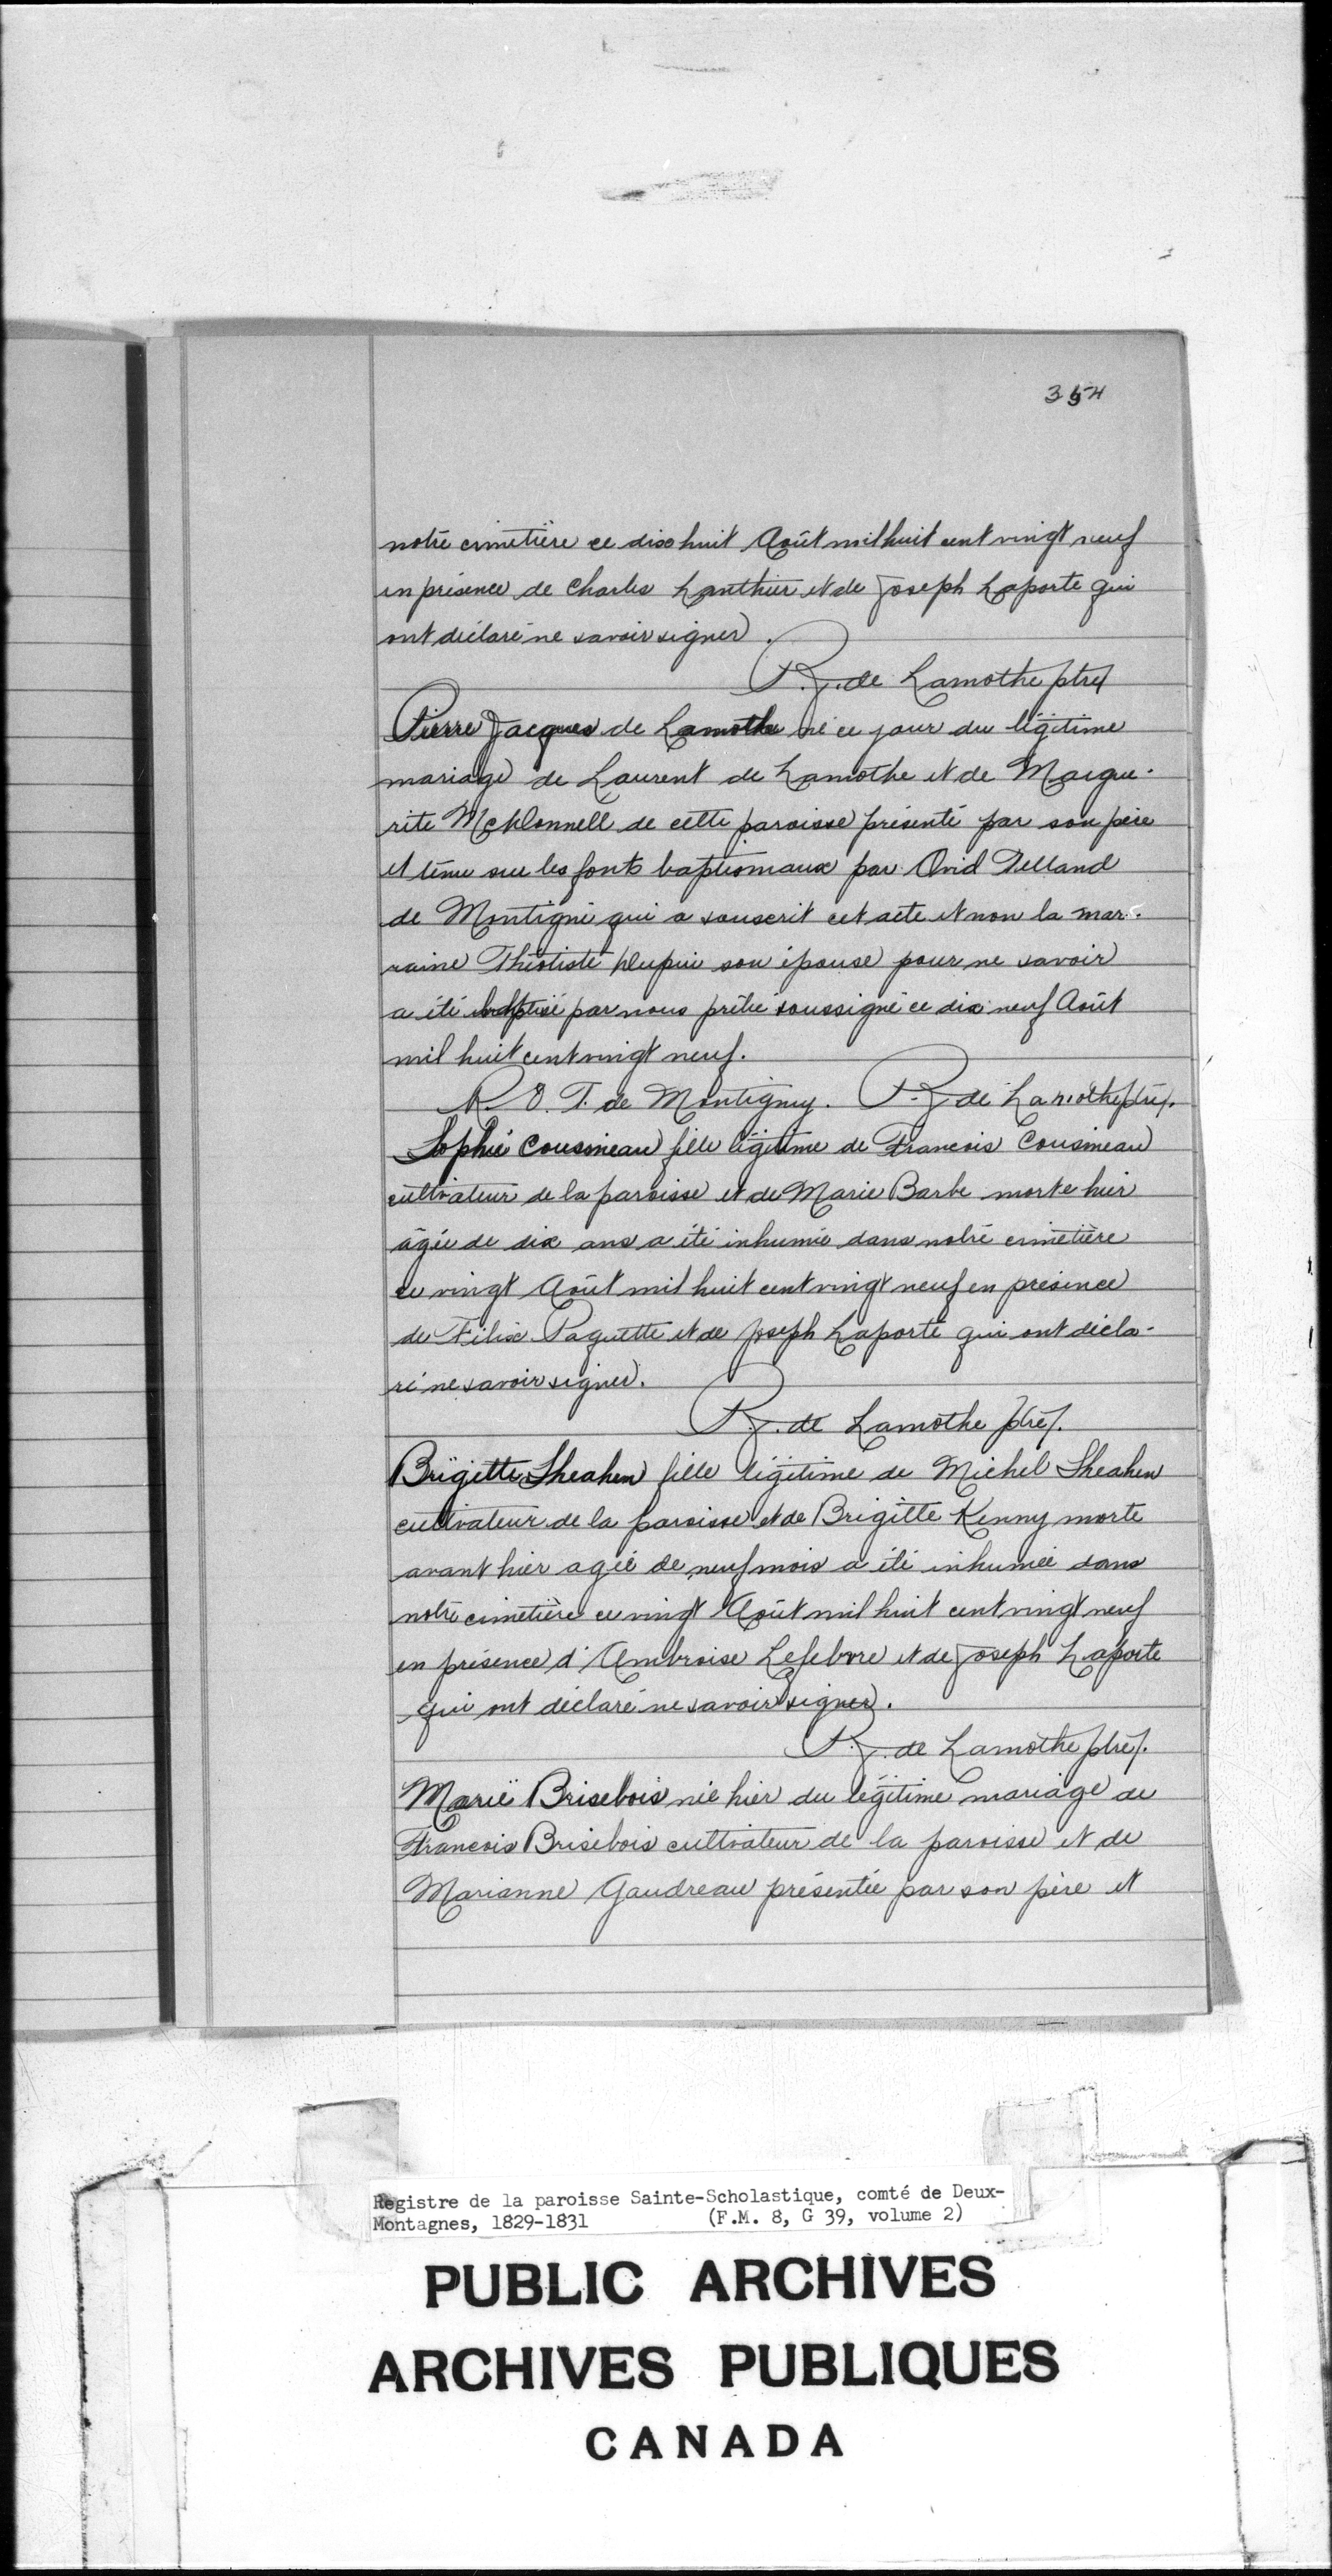 354
notre cimetière ce dix huit Août mil huit cent vingt neuf
en présence de Charles Lanthier et de Joseph Laporte qui
ont déclaré ne savoir signer.
P. J. de Lamothe ptre
Pierre Jacques de Lamothe né ce jour du légitime
mariage de Laurent de Lamothe et de Margue-
rite McDonnell de cette paroisse présenté par son père
et tenu sur les fonts baptismaux par Ovid Telland
de Montigni qui a souscrit cet acte et non la mar-
raine Théotiste Dupui son épouse pour ne savoir
a été baptisé par nous prêtre soussigné ce dix neuf Août
mil huit cent vingt neuf.
O. T. de Montigny. P. J. de Lamothe ptre.
Sophie Cousineau fille légitime de Francois Cousineau
cultivateur de la paroisse et de Marie Barbe morte hier
âgée de dix ans a été inhumée dans notre cimetière
ce vingt Août mil huit cent vingt neuf en présence
de Félix Paquette et de Joseph Laporte qui ont décla-
ré ne savoir signer.
P. J. de Lamothe ptre.
Brigitte Sheahen fille légitime de Michel Sheahen
cultivateur de la paroisse et de Brigitte Kenny morte
avant hier agée de neuf mois a été inhumée dans
notre cimetière ce vingt Août mil huit cent vingt neuf
en présence d'Ambroise Lefebvre et de Joseph Laporte
qui ont déclaré ne savoir signer.
P. J. de Lamothe ptre.
Marie Brisebois née hier du légitime mariage de
Francois Brisebois cultivateur de la paroisse et de
Marianne Gaudreau présentée par son père et
Registre de la paroisse Sainte-Scholastique, comté de Deux-
Montagnes, 1829-1831 (F.M. 8, G 39, volume 2)
PUBLIC ARCHIVES
ARCHIVES PUBLIQUES
CANADA